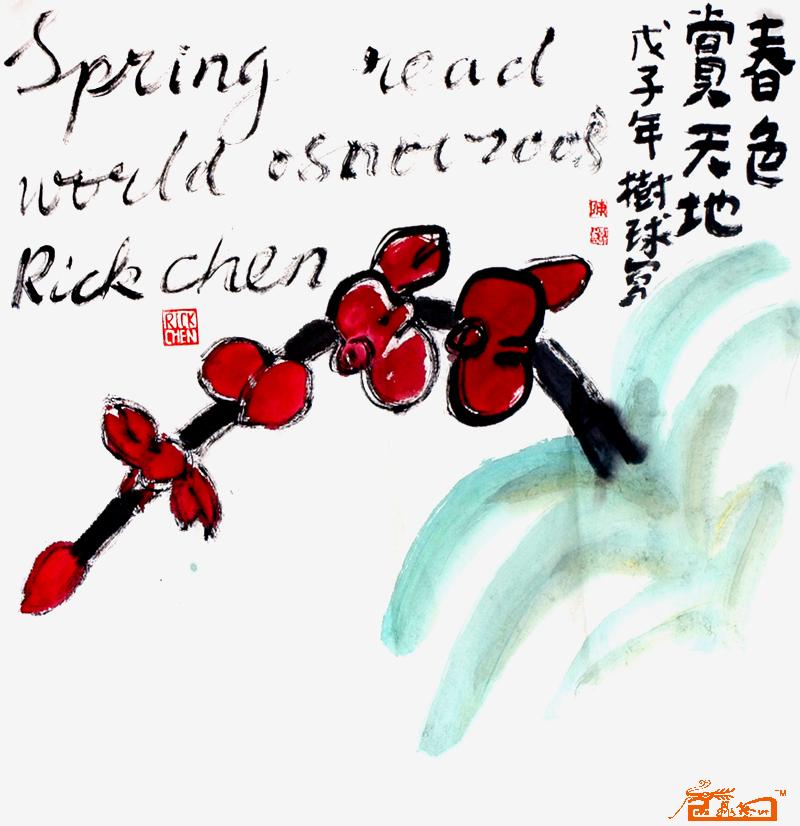 Spring read
world
Rick chen
RICK
CHEN
春色
賞天地
戊子年 樹球写
陳
TM